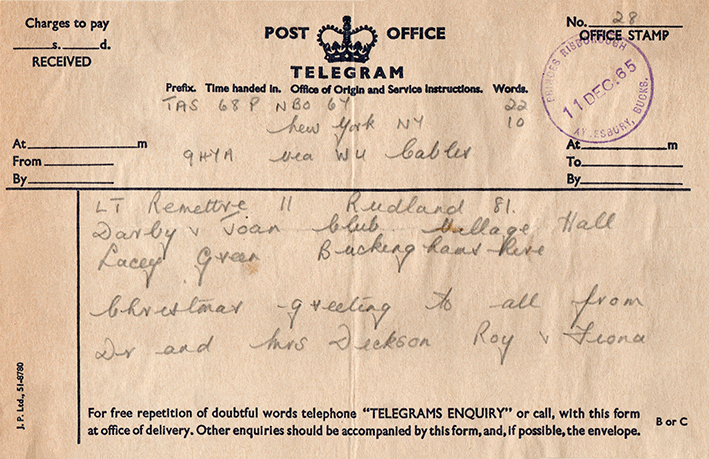 Charges to pay
s. d.
RECEIVED
POST OFFICE
TELEGRAM
No. 28
OFFICE STAMP
PRINCES RISBOROUGH
11 DEC. 65
AYLESBURY, BUCKS.
Prefix. Time handed in. Office of Origin and Service Instructions. Words.
TAS 68 P NBO 67 22
New York NY 10
9HYA via WU Cables
At m
From
By
At m
To
By
LT Remettre 11 Rudland 81.
Darby & Joan Club Village Hall
Lacey Green Buckinghamshire
Christmas greeting to all from
Dr and Mrs Dickson Roy & Fiona
For free repetition of doubtful words telephone "TELEGRAMS ENQUIRY" or call, with this form
at office of delivery. Other enquiries should be accompanied by this form, and, if possible, the envelope.
B or C
J. P. Ltd., 51-8780